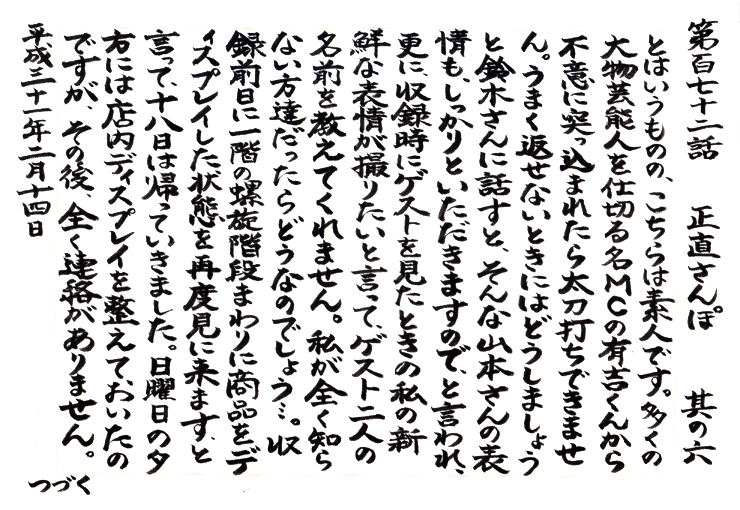 第百七十二話　正直さんぽ　其の六
とはいうものの、こちらは素人です。多くの
大物芸能人を仕切る名MCの有吉くんから
不意に突っ込まれたら太刀打ちできませ
ん。うまく返せないときにはどうしましょう
と鈴木さんに話すと、そんな山本さんの表
情も、しっかりといただきますので、と言われ、
更に、収録時にゲストを見たときの私の新
鮮な表情が撮りたいと言って、ゲスト二人の
名前を教えてくれません。私が全く知ら
ない方達だったらどうなのでしょう…。収
録前日に一階の螺旋階段まわりに商品をデ
ィスプレイした状態を再度見に来ます、と
言って、十八日は帰っていきました。日曜日の夕
方には店内ディスプレイを整えておいたの
ですが、その後、全く連絡がありません。
平成三十一年二月十四日
つづく